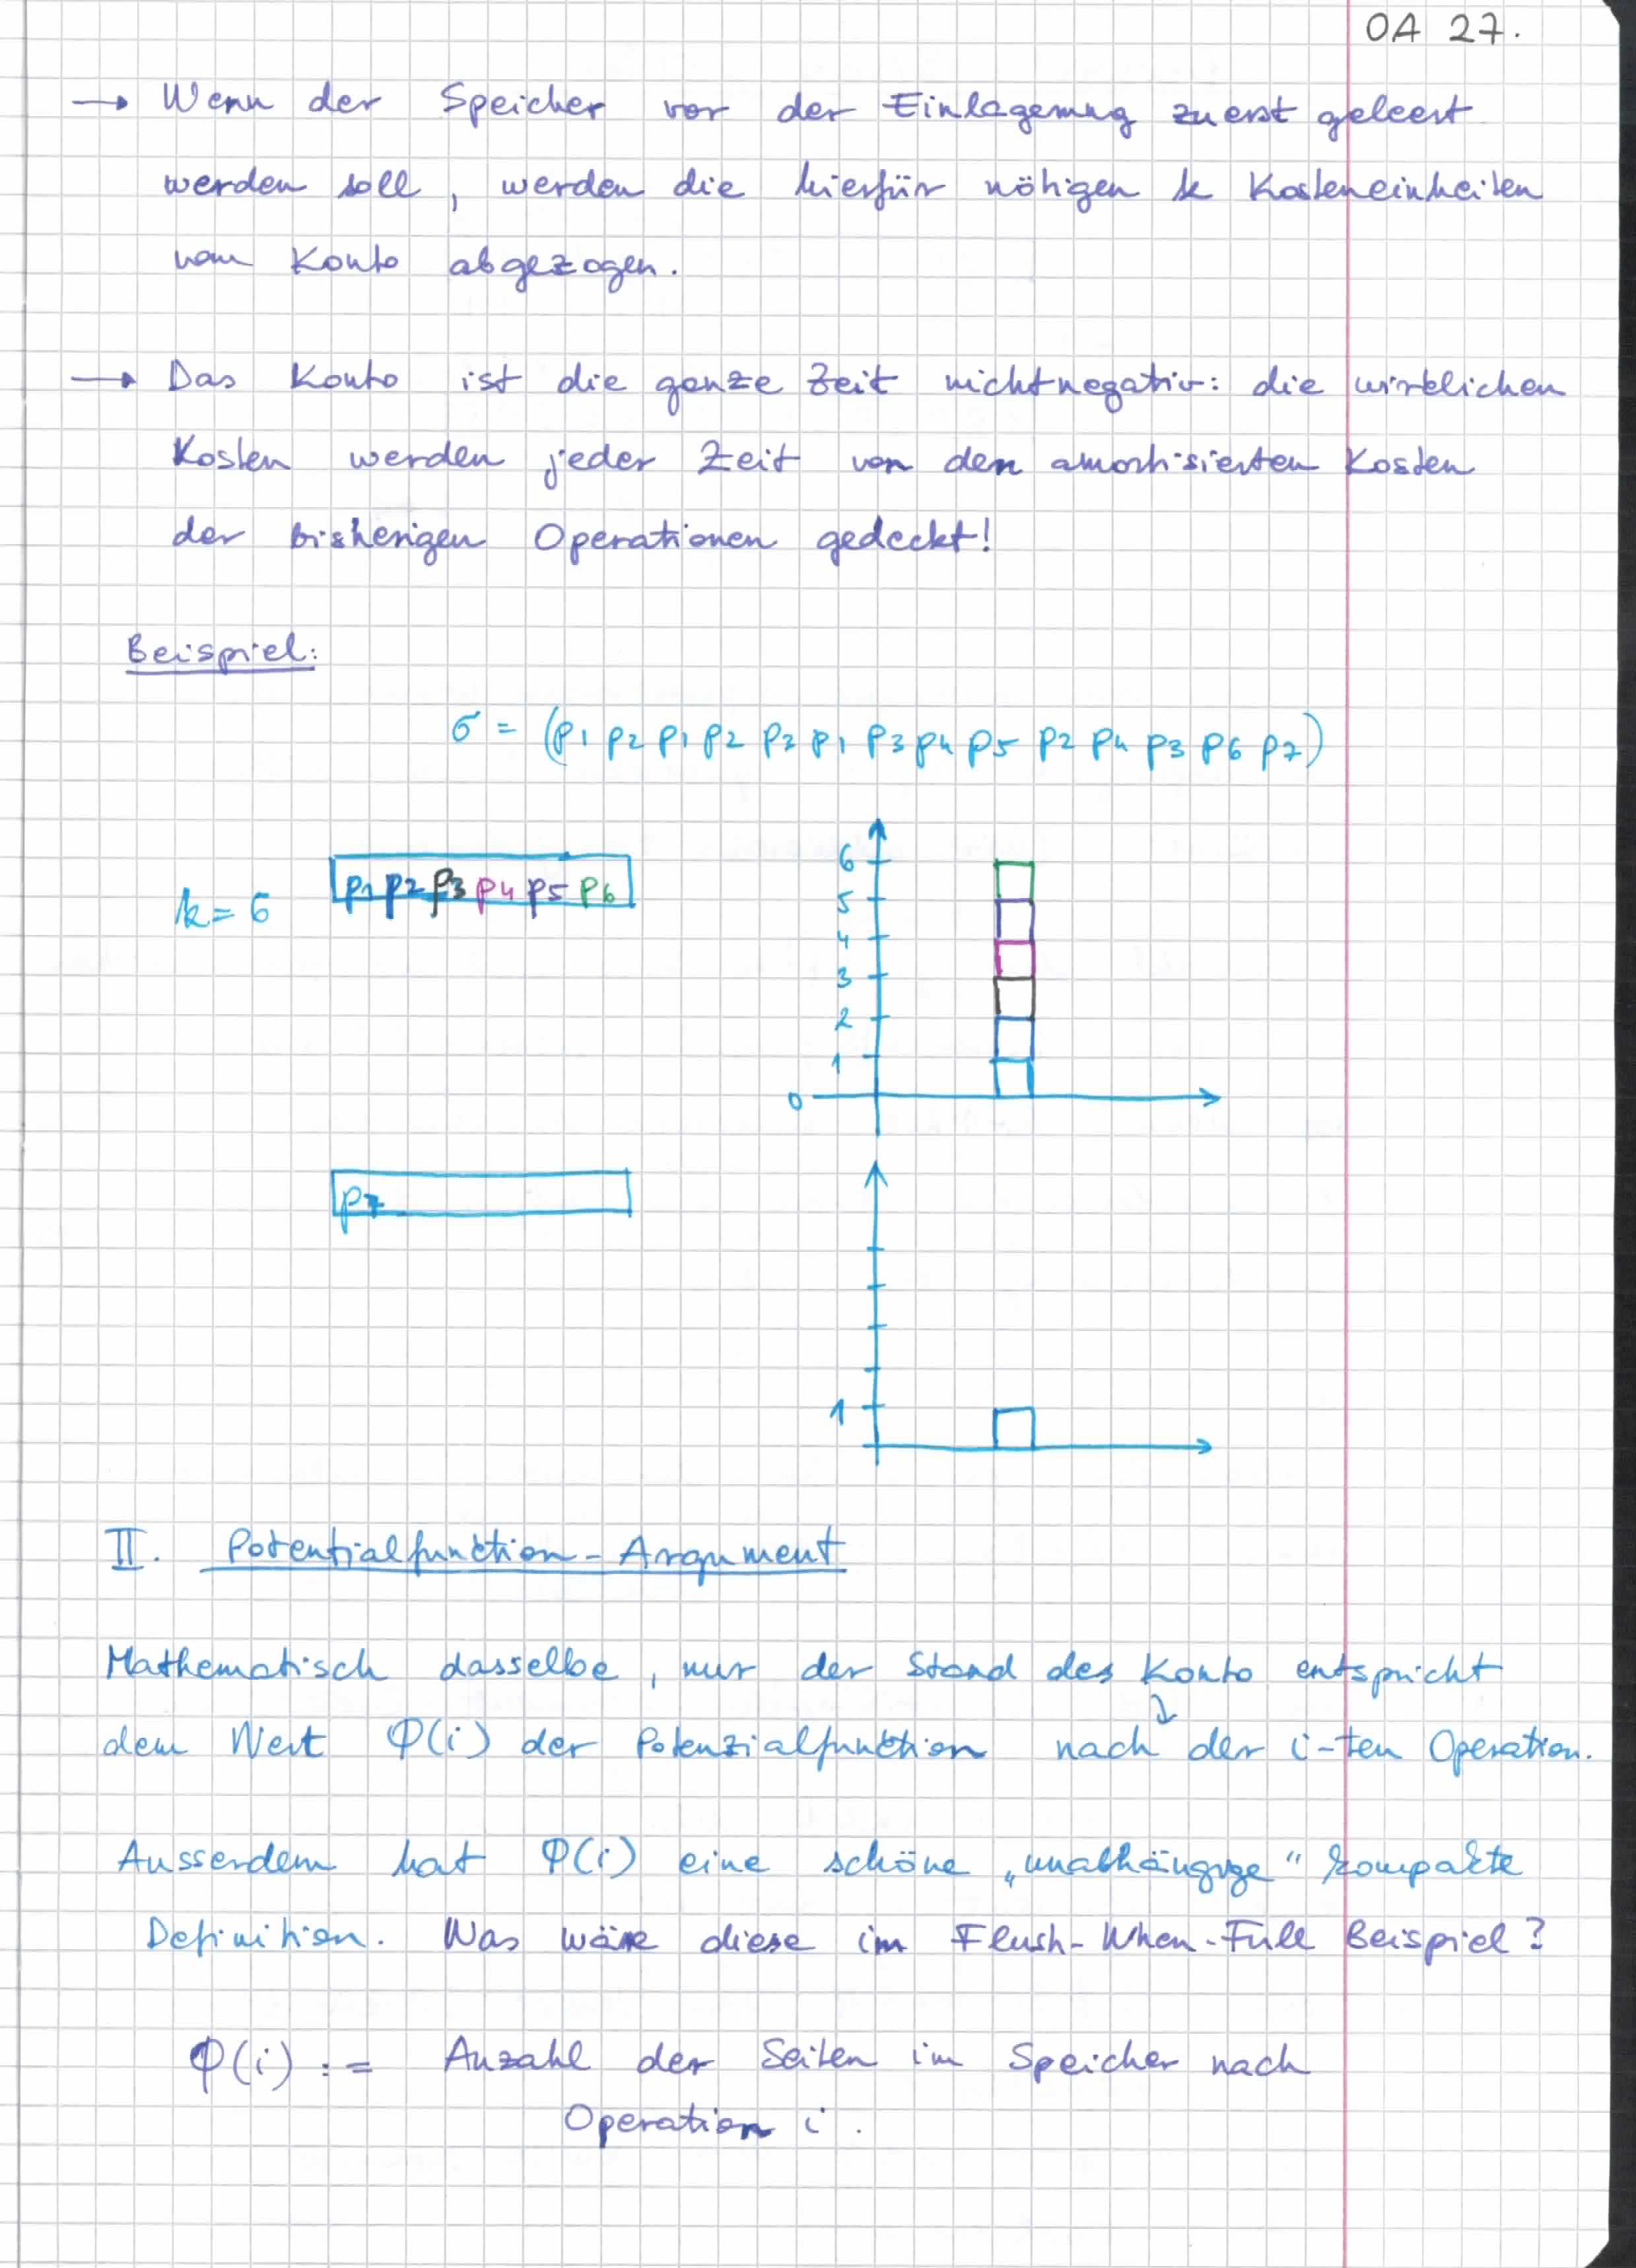 OA 27.
→ Wenn der Speicher vor der Einlagerung zuerst geleert
werden soll, werden die hierfür nötigen k Kosteneinheiten
vom Konto abgezogen.
→ Das Konto ist die ganze Zeit nichtnegativ: die wirklichen
Kosten werden jeder Zeit von den amortisierten Kosten
der bisherigen Operationen gedeckt!
Beispiel:
σ = (p1 p2 p1 p2 p2 p1 p3 p4 p5 p2 p4 p3 p6 p7)
k = 6
p1 p2 p3 p4 p5 p6
6
5
4
3
2
1
0
p7
1
II. Potentialfunction-Argument
Mathematisch dasselbe, nur der Stand des Konto entspricht
dem Wert Φ(i) der Potenzialfunktion nach der i-ten Operation.
Ausserdem hat Φ(i) eine schöne „unabhängige" kompakte
Definition. Was wäre diese im Flush-When-Full Beispiel?
Φ(i) := Anzahl der Seiten im Speicher nach
Operation i.